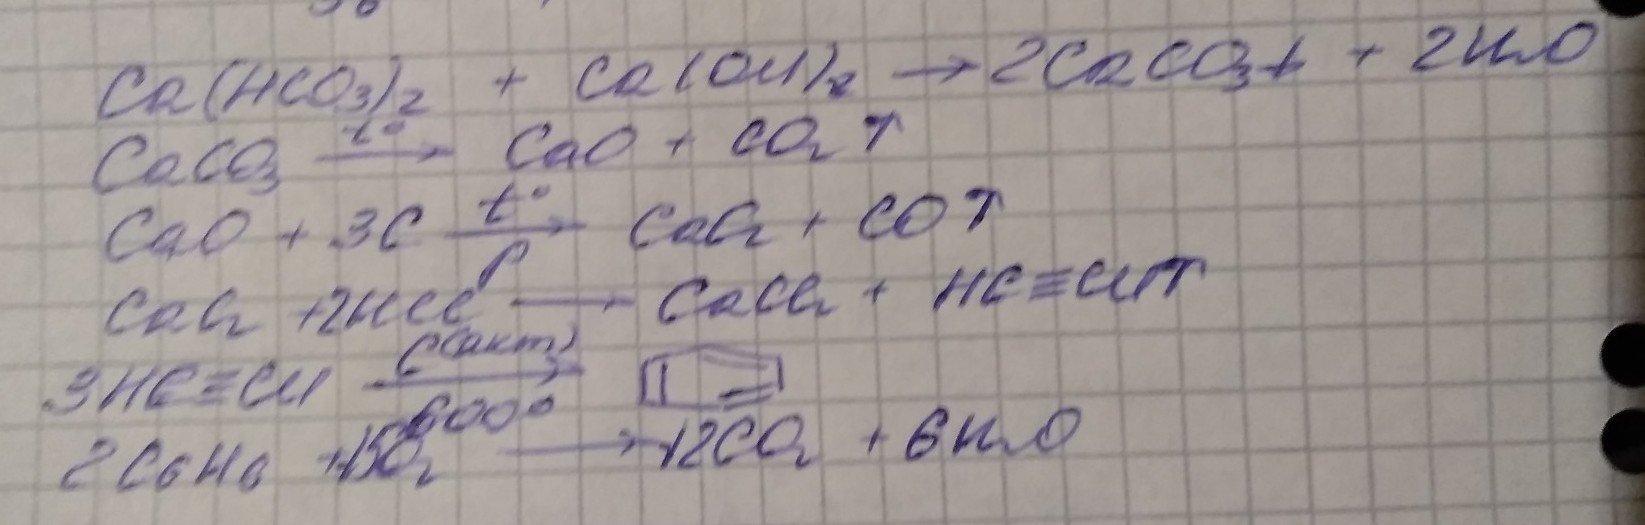 Ca(HCO₃)₂ + Ca(OH)₂ → 2CaCO₃↓ + 2H₂O
CaCO₃ —t°→ CaO + CO₂↑
CaO + 3C —t°→ CaC₂ + CO↑
CaC₂ + 2HCl → CaCl₂ + HC≡CH↑
3HC≡CH —C(акт), 600°→
2C₆H₆ + 15O₂ → 12CO₂ + 6H₂O